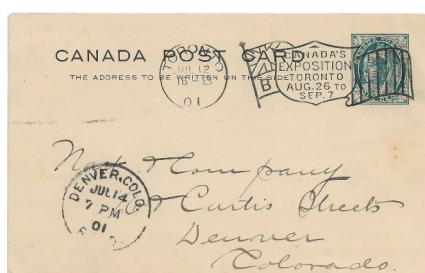 CANADA POST CARD
THE ADDRESS TO BE WRITTEN ON THIS SIDE
TORONTO
JUL 12
01
CANADA'S
EXPOSITION
TORONTO
AUG. 26 TO
SEP. 7
DENVER, COLO.
JUL 14
7 PM
01
& Company
& Curtis Streets
Denver
Colorado.